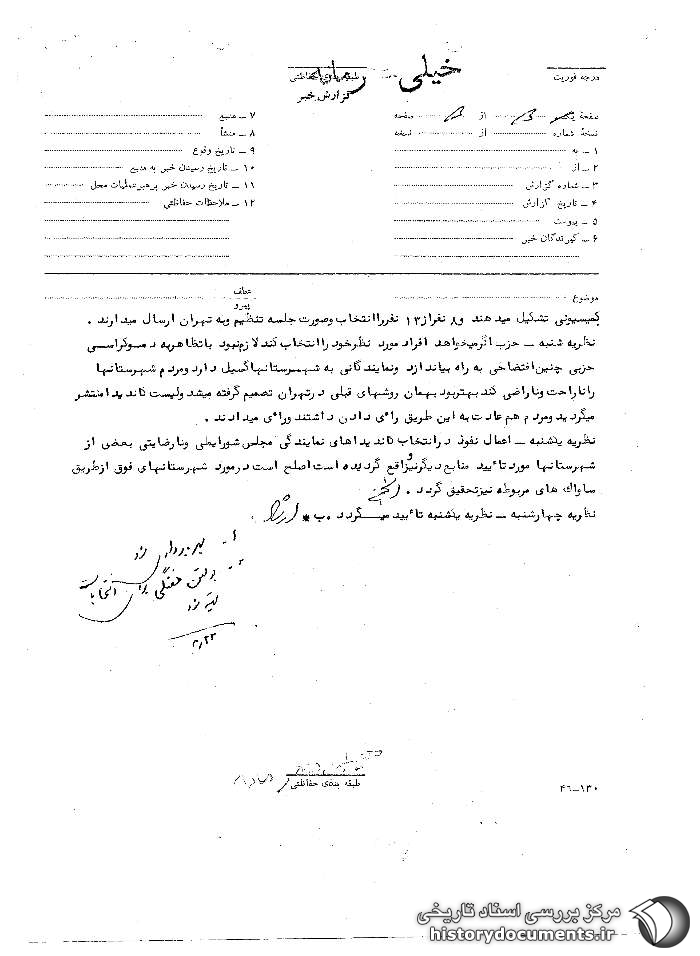 خیلی
درجه فوریت
طبقه‌بندی حفاظتی
گزارش خبر
صفحه از صفحه
نسخه شماره از نسخه
۱ ـ به
۲ ـ از
۳ ـ شماره گزارش
۴ ـ تاریخ گزارش
۵ ـ پیوست
۶ ـ گیرندگان خبر
۷ ـ منبع
۸ ـ منشأ
۹ ـ تاریخ وقوع
۱۰ ـ تاریخ رسیدن خبر به منبع
۱۱ ـ تاریخ رسیدن خبر برهبر عملیات محل
۱۲ ـ ملاحظات حفاظتی
موضوع
عطف
پیرو
کمیسیونی تشکیل میدهند و ۸ نفر از ۱۳ نفر را انتخاب و صورت جلسه تنظیم و به تهران ارسال میدارند .
نظریه شنبه ـ حزب اگر میخواهد افراد مورد نظر خود را انتخاب کند لازم نبود با تظاهر به دموکراسی
حزبی چنین افتضاحی به راه بیاندازد و نمایندگانی به شهرستانها گسیل دارد و مردم شهرستانها
را ناراحت و ناراضی کند بهتر بود بهمان روشهای قبلی در تهران تصمیم گرفته میشد و لیست کاندیدا منتشر
میگردید و مردم هم عادت به این طریق رای دادن داشتند و رای میدادند .
نظریه یکشنبه ـ اعمال نفوذ در انتخاب کاندیداهای نمایندگی مجلس شورایملی و نارضایتی بعضی از
شهرستانها مورد تأیید منابع دیگر نیز واقع گردیده است اصلح است در مورد شهرستانهای فوق از طریق
ساواک های مربوطه نیز تحقیق گردد .
نظریه چهارشنبه ـ نظریه یکشنبه تأیید میگردد . ب *
۱ـ بهره‌برداری شد
۲ـ در بولتن هفتگی برای انتخابات
طبقه بندی حفاظتی
۴۶ـ۱۳۰
مرکز بررسی اسناد تاریخی
historydocuments.ir